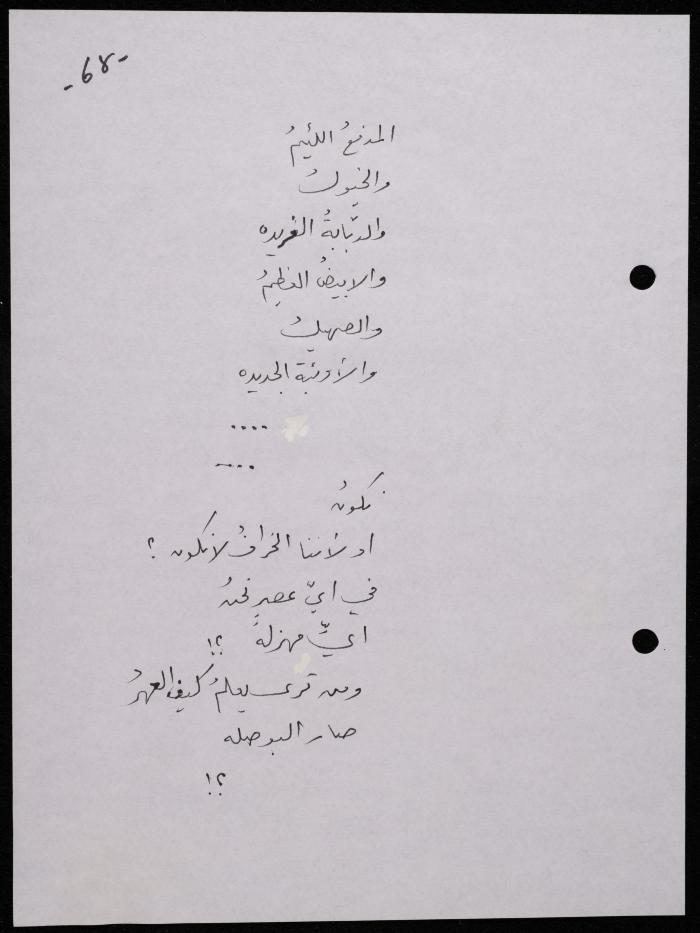 -٦٨-
المدفعُ اللئيمُ
والخيولُ
والدبّابةُ الفريده
والابيضُ العظيمُ
والصهيلُ
والأوبئةُ الجديده
....
....
نكونُ
او لأننا الخرافُ لا نكون ؟
في ايّ عصرٍ نحنُ
ايُّ مهزلةً ؟!
ومن ترى يعلمُ كيف العهرُ
صار البوصله
؟!